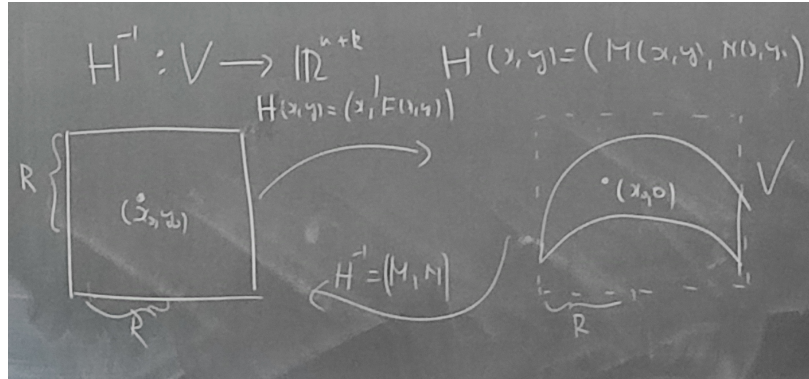 H⁻¹ : V → ℝⁿ⁺ᵏ, H⁻¹(x,y) = (M(x,y), N(x,y))
H(x,y) = (x, F(x,y))
R
(x₀, y₀)
R
H⁻¹ = (M, N)
(x₀, 0)
V
R